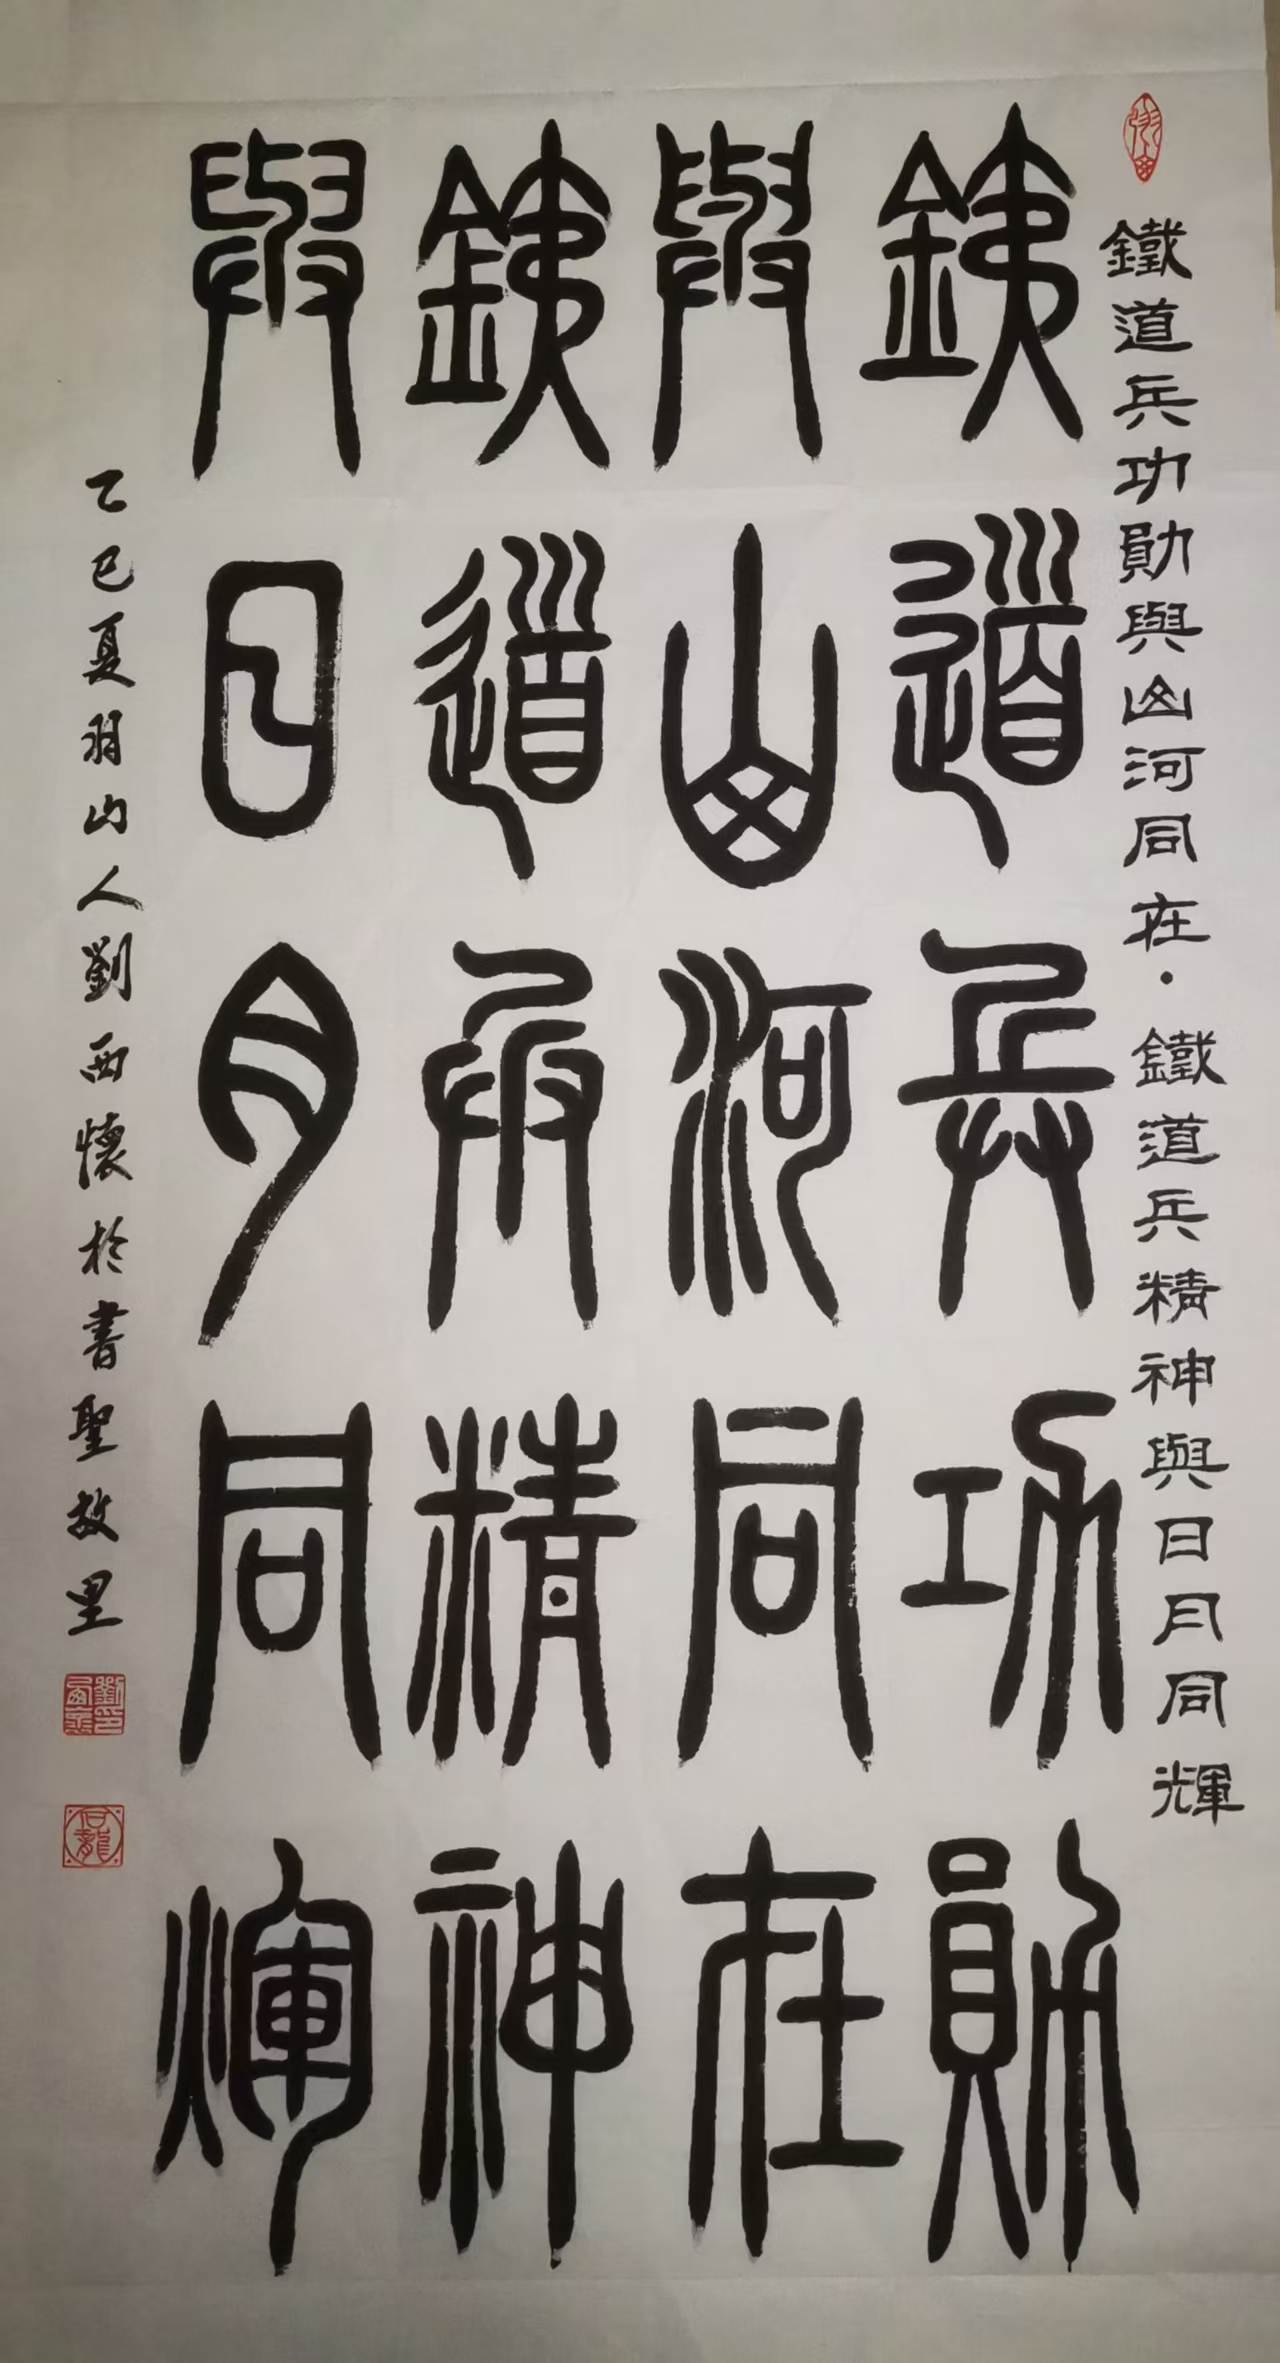 鐵道兵功勛與山河同在·鐵道兵精神與日月同輝
鐵道兵功勛
與山河同在
鐵道兵精神
與日月同輝
乙巳夏羽山人劉西懷於書聖故里